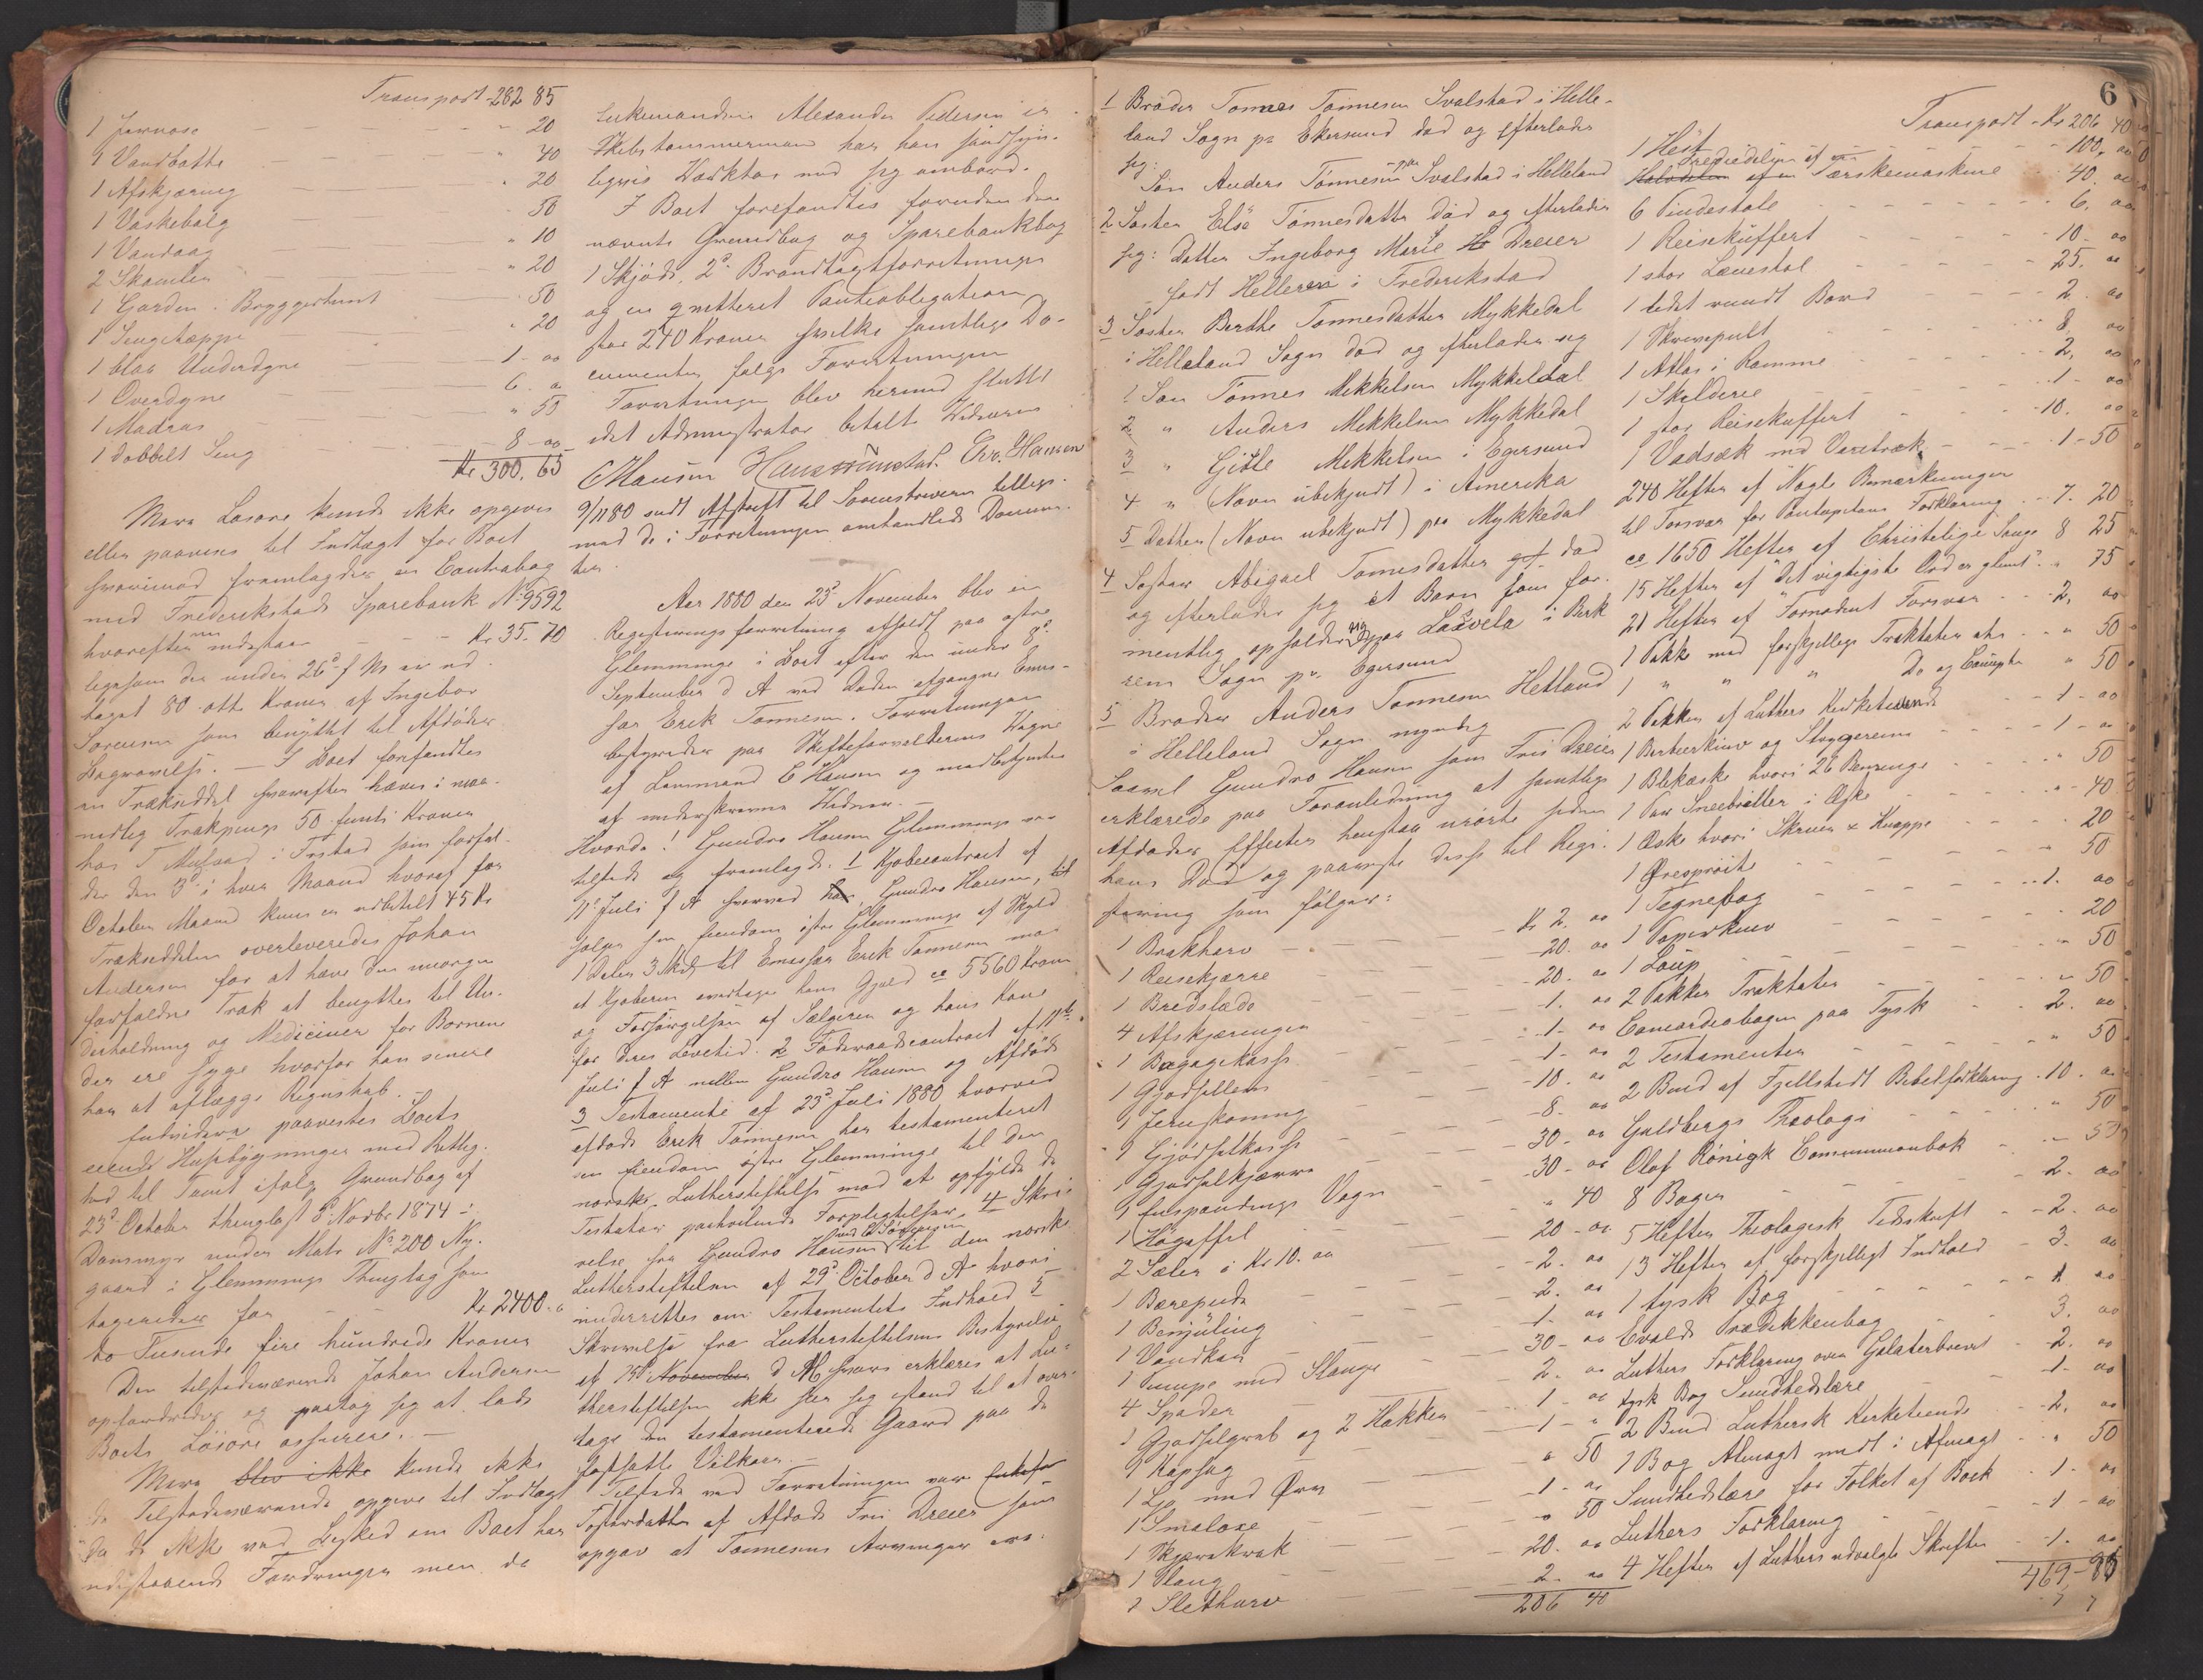 Transport 282 85
1 Jernose - " 20
1 Vandbøtte " 40
1 Afskjæring " 20
1 Vaskebalg " 50
1 Vandaag " 10
2 Skamler " 20
1 Gardin i Bryggerhuset 50
1 Sengetæppe " 20
1 blaa Underdyne 1 - 00
1 Overdyne 6 - 00
1 Madras " 50
1 dobbelt Seng 8 - 00
Kr 300. 65
Mere Løsøre kunde ikke opgives
eller paavises til Indtægt for Boet
hvorimod fremlagdes en Contrabog
med Frederikstads Sparebank No 9592
hvorefter indestaar - - - Kr 35. 70
ligesom der under 26d f M er ud-
taget 80 otte Kroner af Ingebor
Sørensen som benyttet til Afdødes
Begravelse. - I Boet forefandtes
en Trækseddel hvorefter hæves i maa-
nedlig Trækpenge 50 femti Kroner
hos T i Frstad som forfal-
der den 3d i hver Maaned hvoraf for
October Maaned kun er udbetalt 45 Kr
Trækseddelen overleveredes Johan
Andersen for at hæve den imorgen
forfaldne Træk at benyttes til Un-
derholdning og Mediciner for Børnene
der ere syge hvorfor han senere
har at aflægge Regnskab.
Endvidere paavistes Boets
eiende Husebygninger med Rettig-
hed til Tomt ifølge Grundbog af
23d October thinglæst 5d Novbr 1874 i
Dammyr under Matr No 200 Ny-
gaard i Glemminge Thinglag som
togeredes for - - Kr 2400. 00
to Tusende fire hundrede Kroner
Den tilstedeværende Johan Andersen
opfordredes og paatog sig at lade
Boets Løsøre assurere. -
Mere blev ikke kunde ikke
de Tilstedeværende opgive til Indtægt
da de ikke ved Besked om Boet har
udestaaende Fordringer men da
Enkemanden Alexander Pedersen er
Skibstømmermand har han sandsyn-
ligvis Værktøi med sig ombord.
I Boet forefandtes foruden den
nævnte Grundbog og Sparebankbog
1 Skjøde, 2d Brandtagtforretninge
og en qvitteret Panteobligation
stor 240 Kroner hvilke samtlige Do-
cumenter følge Forretningen
Forretningen blev hermed sluttet
idet Administrator betalte Vidnerne
C Hansen Hans Chr. Hansen
9/11 80 sendt Afskrift til Sorenskriveren tillige-
med de i Forretningen omhandlede Documen-
ter.
Aar 1880 den 23d November blev en
Registreringsforretning afholdt paa østre
Glemminge i Boet efter den under 8de
September d A ved Døden afgangne Emis-
sær Erik Tønnesen. Forretningen
bestyredes paa Skifteforvalterens Vegne
af Lensmand C Hansen og medbetjentes
af underskrevne Vidner. -
Hvorda! Gundro Hansen Glemminge var
tilstede og fremlagde: 1 Kjøbecontract af
11d Juli f A hvorved han, Gundro Hansen, til
sælger sin Eiendom østre Glemminge af Skyld
1 Daler 3 Skil til Emissær Erik Tønnesen mod
at Kjøberen overtager hans Gjæld ca 5560 Kroner
og Forsørgelsen af Sælgeren og hans Kone
for deres Levetid. 2 Føderaadscontract af 11te
Juli f A mellem Gundro Hansen og Afdøde
3 Testamente af 23d Juli 1880 hvorved
afdøde Erik Tønnesen har testamenteret
sin Eiendom østre Glemminge til den
norske Lutherstiftelse mod at opfylde de
Testator paahvilende Forpligtelser 4 Skri-
velse fra Gundro Hansen til den norske
Lutherstiftelsen af 29d October d A hvori
underrettes om Testamentets Indhold 5
Skrivelse fra Lutherstiftelsens Bestyrelse
af 15d November d M hvori erklæres at Lu-
therstiftelsen ikke ser sig istand til at over-
tage den testamenterede Gaard paa de
fastsatte Vilkaar.
Tilstede ved Forretningen var
Søsterdatter af Afdøde Frii Dreier som
opgav at Tønnesens Arvinger ere:
6
1 Broder Tønnes Tønnesen Svalstad i Helle-
land Sogn pr Ekersund død og efterlader
sig:
Søn Anders Tønnesen paa Svalstad i Helleland
2 Søster Else Tønnesdatter død og efterlader
sig: Datter Ingeborg Marie H Dreier
født Helleren i Frederikstad
3 Søster Berthe Tønnesdatter Mykkedal
i Helleland Sogn død og efterlader sig
1 Søn Tønnes Mikkelsen Mykkeldal
2 " Anders Mikkelsen Mykkedal
3 " Gitle Mikkelsen i Egersund
4 " (Navn ubekjendt) i Amerika
5 Datter (Navn ubekjendt) paa Mykkedal
4 Søster Abigael Tønnesdatter gf død
og efterlader sig et Barn som for-
mentlig opholder sig paa Laxvela i Birk
rem Sogn pr. Egersund
5 Broder Anders Tønnesen Hetland
i Helleland Sogn myndig
Saavel Gundro Hansen som Frii Dreier
erklærede paa Foranledning at samtlige
Afdødes Effecter henstaa urørte siden
hans Død og paaviste disse til Regi-
strering som følger:
1 Brakharv - Kr 2. 00
1 Reisekjærre 20. 00
1 Bredslæde 20. 00
4 Afskjæringer 1. 00
1 Bagagekasse 1. 00
1 Gjødsellem 1. 00
1 Jernskoning 10. 00
1 Gjødselkasse 8. 00
1 Gjødselkjærre 30. 00
1 Enspændings Vogn 30. 00
1 Høgaffel " 40
2 Sæler à Kr 10. 00 20. 00
1 Bærepude 2. 00
1 Benjuling 2. 00
1 Vandkar 1. 00
1 Pumpe med Slange 30. 00
4 Spader 2. 00
1 Gjødselgreb og 2 Hakker 1 00
1 Kapsag 1 - "
1 Ljo med Orv " 50
1 Smaløxe 1 - 00
1 Skjærekrak " 50
1 Plaug 20. 00
1 Sletharv 2. 00
206 40
Transport - Kr 206 40
1 Hest 100. 00
Trediedelen af en
Halvdelen af en Tærskemaskine 40. 00
6 Pindestole 6. 00
1 Reisekuffert 10. 00
1 stor Lænestol 25. 00
1 lidet rundt Bord 2. 00
1 Skrivepult 8. 00
1 Atlas i Ramme 2. 00
1 Skilderie 1. 00
1 stor Reisekuffert 10. 00
1 Vadsæk med Voxetræk 1 - 50
240 Hefter af Nogle Bemærkninger
til Forsvar for Pontopidans Forklaring 7. 20
ca 1650 Hefter af Christelige Sange 8 25
15 Hefter af "Det vigtigste Ord er glemt" " 75
21 Hefter af Fornødent Forsvar 2. 00
1 Pakk med forskjellige Traktater etc " 50
1 " " " Do og Couverter " 50
2 Pakker af Luthers Kirketidende 1 - 00
1 Barbeerkniv og Strygerem 1 - 00
1 Blekæske hvori 26 Penge " 50
1 Par Sneebriller i Æske " 40
1 Æske hvori Skruer & Knappe 20
1 Øresprøite " 50
1 Tegnebog 1. 00
1 Papirkniv 20
1 Loup " 50
2 Pakker Traktater " 50
Concordiabogen paa Tysk 2. 00
2 Testamenter " 50
2 Bind af Fjellstedt Bibelforklaring 10. 00
Guldbergs Theologi " 50
Olof Rönigk Communionbok " 50
8 Bøger 2. 00
5 Hefter Theologisk Tidsskrift 2. 00
13 Hefter af forskjelligt Indhold 3. 00
1 tysk Bog 1. 00
Evalds Prædikkenbog 3. 00
Luthers Forklaring over Galaterbrevet 2. 00
tysk Bog Sundhedslære 1. 00
2 Bind Luthersk Kirketiende 2. 00
1 Bog Almagt midt i Afmagt " 50
Sundhedslære for Folket af Bock 1. 00
Luthers Forklaring 1 - 00
4 Hefter af Luthers udvalgte Skrifter 1. 00
469 - 85